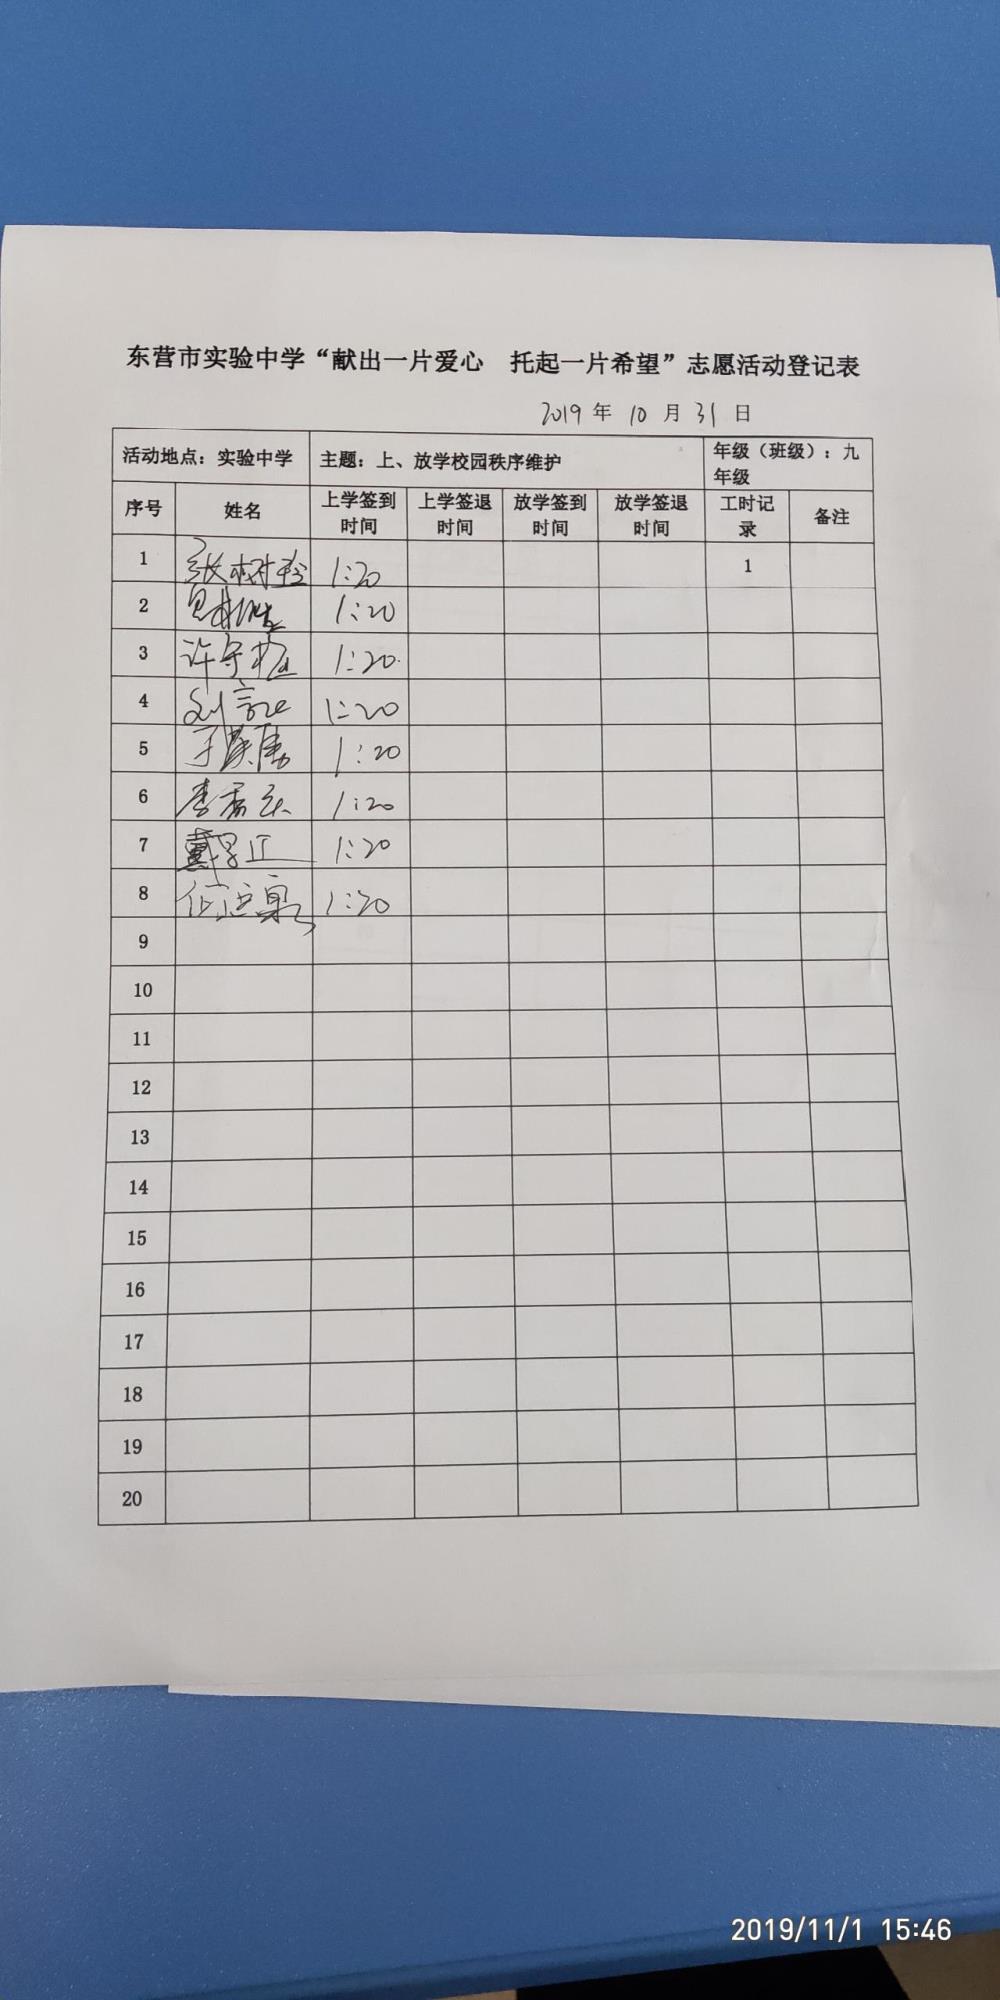 东营市实验中学“献出一片爱心 托起一片希望”志愿活动登记表
2019 年 10 月 31 日
活动地点：实验中学 主题：上、放学校园秩序维护 年级（班级）：九年级
序号 姓名 上学签到时间 上学签退时间 放学签到时间 放学签退时间 工时记录 备注
1 张树 1:20 1
2 1:20
3 许守 1:20
4 刘 1:20
5 于 1:20
6 李 1:20
7 戴 正 1:20
8 何 1:20
9
10
11
12
13
14
15
16
17
18
19
20
2019/11/1 15:46